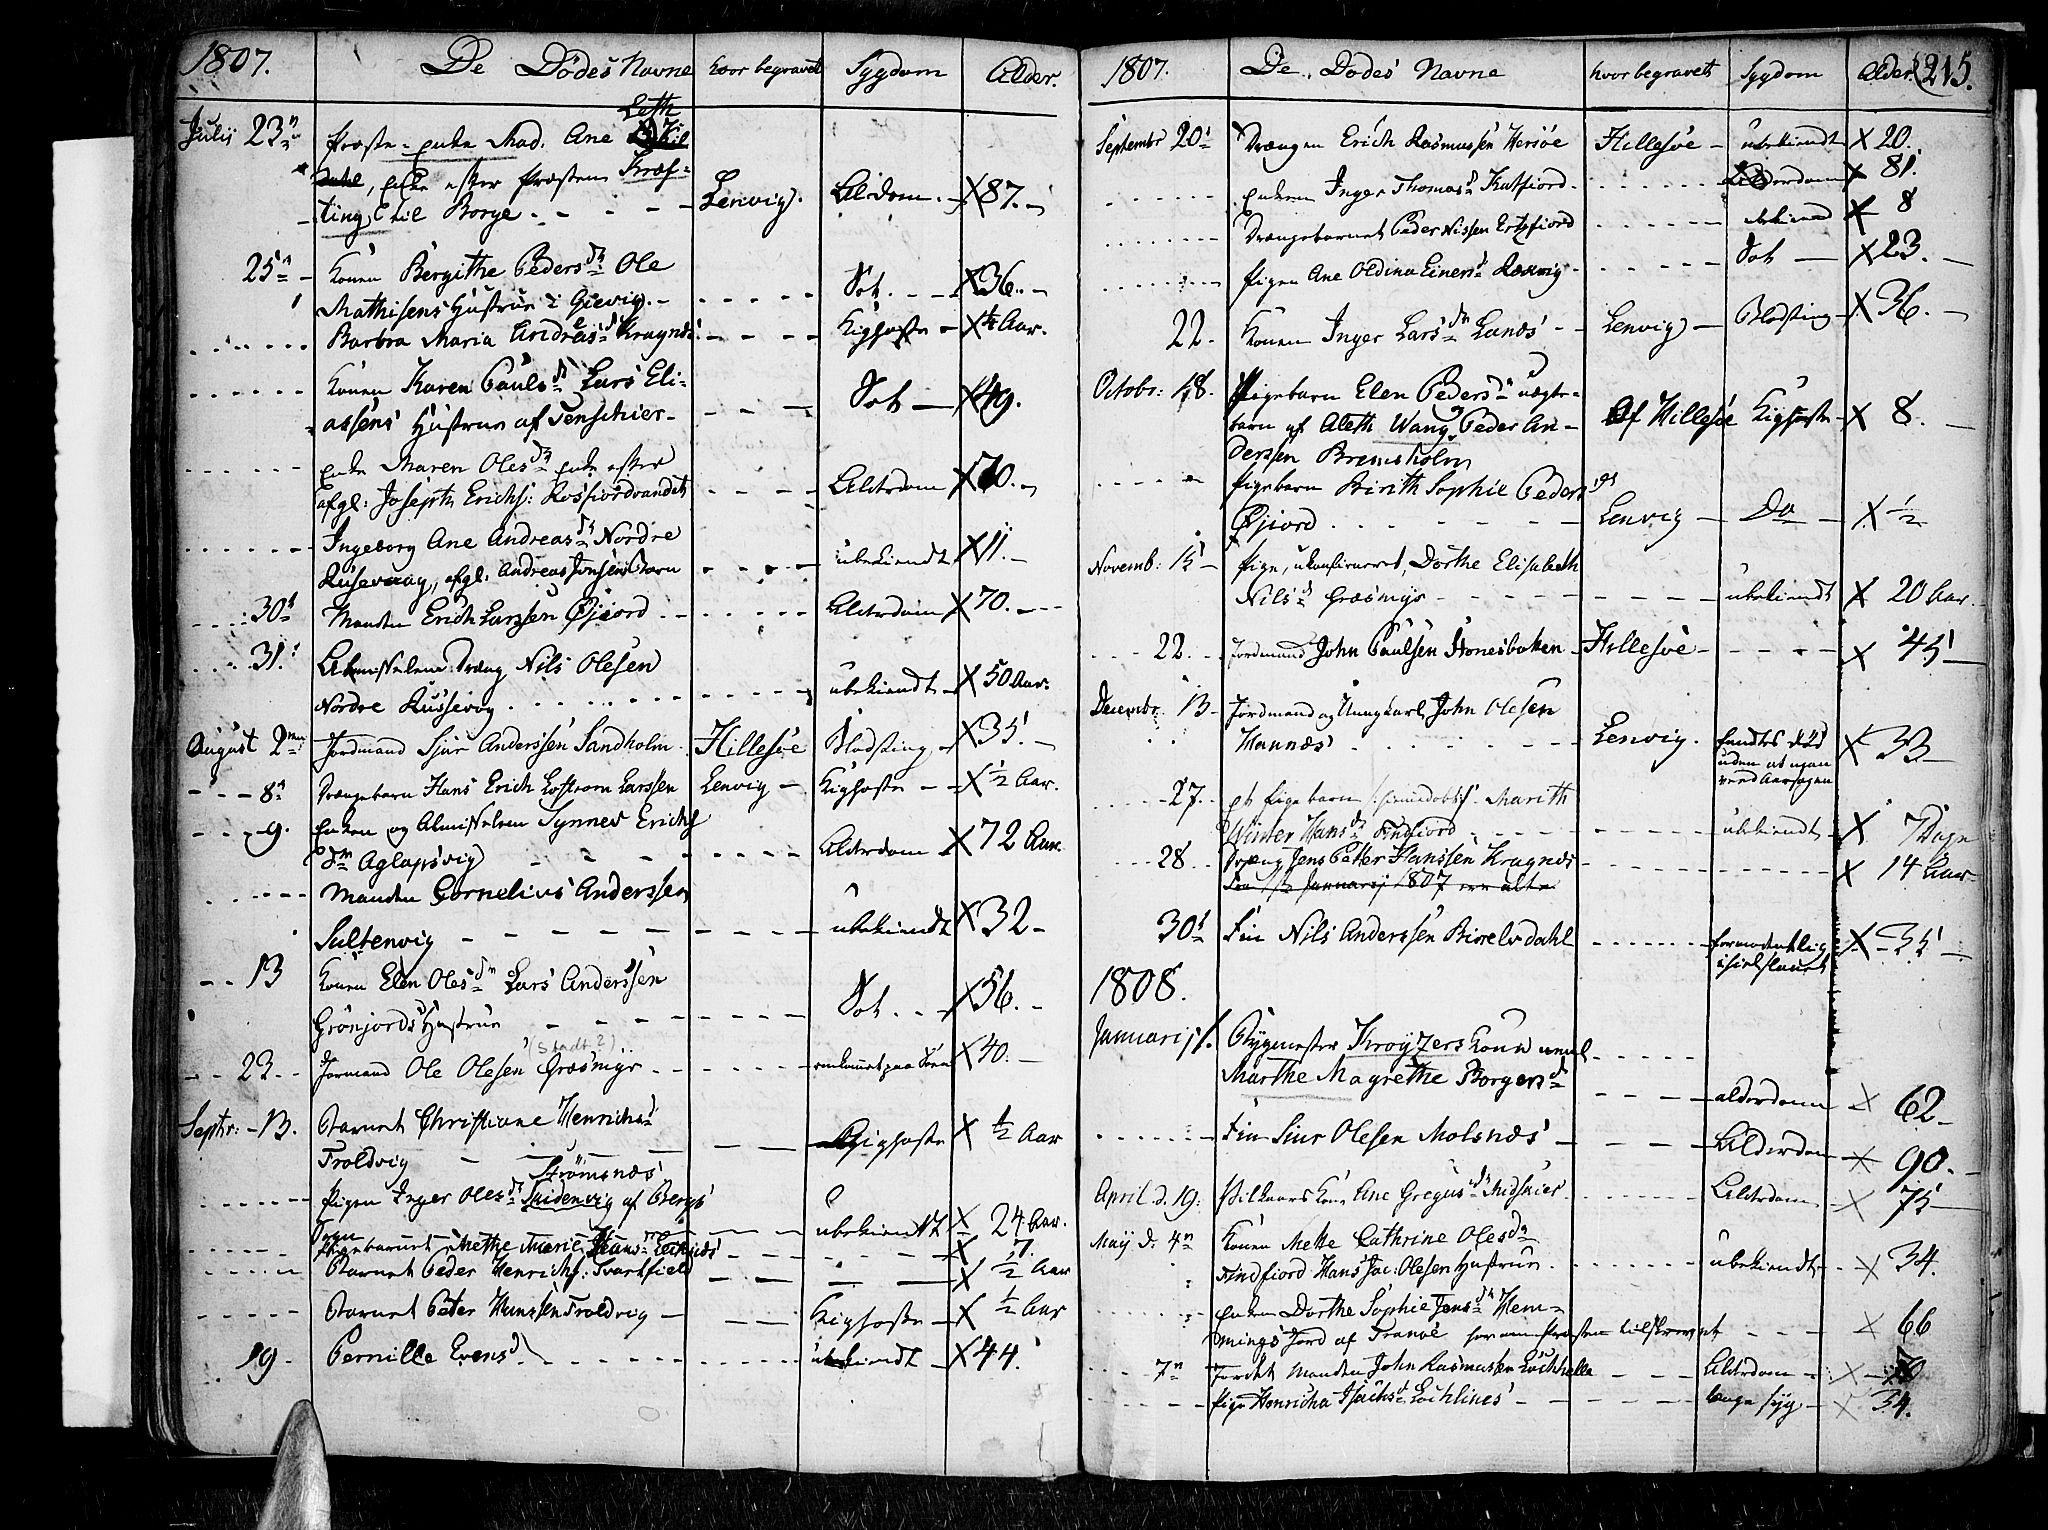 1807. De Dödes Navne hvor begravet Sygdom Alder.
Julij 23n Præste-enke Mad. Ane Leth
, enke efter Præsten Kræf-
ting, Borge. - - - Lenvig. Alrdom. - X 87. -
25n - Konen Bergithe Pedersdn Ole
Mathisens Hustrue i Gievig. - - - - Sot. - - X 36. -
Barbra Maria Andreasd Kragnæs - - - Kighoste - X ½ Aar.
Konen Karen Paulsd Lars Eli-
assens Hustrue af Tenskier - - - - Sot - X 49.
Enke Maren Olesdn Enke efter
afgl: Joseph Erichs: Rosfiordvandet - - - Alderdom X 70. -
Ingeborg Ane Andreasdn Nordre
Rusevaag, afgl: Andreas Jonsens Barn - - - ubekiendt X 11. -
30t Manden Erich Larssen Øjiord - - - Alderdom X 70. - -
31. Almisselem Dreng Nils Olesen
Nordre Russevog - - - ubekiendt - X 50 Aar.
August 2den Jordmand Sjur Anderssen Sandholm. Hillesöe Blodsting - X 35. -
8n Drængebarn Hans Erich Lostrom Larssen Lenvig - Kighoste - - X ½ Aar.
9. Enken og Almisselem Synnev Erichs
dn Aglapsvig - - - Alderdom X 72 Aar
Manden Cornelius Anderssen
Sultenvig - - - ubekiendt X 32 -
13 Konen Elen Olesdn Lars Anderssen
Grönjords Hustrue - - - Sot. - - X 56. -
(Stadt?)
23. Jormand Ole Olesen Græsmyr - - - omkommet paa Söen X 40. -
Septbr: 13. Barnet Christiane Henrichsd
Troldvig - - - Kighoste X ½ Aar
Strömsnæs
Pigen Inger Olesdr Skidenvig af Bergs - - ubekiendt X 24 Aar.
Pigebarnet Methe Marie Hansdr - - - X 7.
Barnet Peder Henrichs: Svartfield - - - X ½ Aar
Barnet Peter Hanssen Troldvig - - - Kighoste - X ½ Aar
19. Pernille Evensd. - - - ubekiendt - X 44.
1807. De Dodes Navne hvor begravet Sygdom Alder. 215.
Septembr 20t Drængen Erich Rasmussen Hersöe Hillesöe - ubekiendt X 20.
Enken Inger Thomasd Katfiord - - - Alderdom X 81.
Drængebarnet Peder Nissen Ertzfiord - - - ubekiend X 8
Pigen Ane Oldina Einersd Rævig - - - Sot - X 23. -
22. Konen Inger Larsdn Lanæs - - Lenvig - Blodsting - X 36. -
Octobr: 18. Pigebarn Elen Pedersd uægte-
barn af Aleth Wang, Peder An- Af Hillesöe Kighoste - X 8. -
derssen Bremsholm
Pigebarn Birith Sophie Peders
Öjiord - - - Lenvig - Do - X ½
Novemb: 15 - Pige, ukonfirmeret, Dorthe Elisabeth
Nilsd Græsmyr - - - ubekiendt X 20 Aar.
22. - Jordmand John Paulsen Stonesbotten - Hillesöe - - - - X 45 -
Decembr. 13 - Jordmand og Ungkarl John Olesen
Hannæs - - - Lenvig. fandtes död X 33 -
uden at nogen
veed Aarsagen
27. - et Pigebarn /: hiemedöbt:/ Marith
Winter Hansd Findfiord - - - ubekiendt - X 7 Dage
28 - Dræng Jens Petter Hanssen Kragnæs - - - X 14 Aar
Januarij 1807
30t Fin Nils Anderssen Birrelvdahl - - - formodentlig X - 35 -
ihielslaaet
1808.
Januarij 1. Bygmester Kroyzers Kone
Marthe Magrethe Borgersd - - - alderdom - X 62 -
Fin Siur Olesen Molsnæs - - - Alderdom - X 90. -
April d. 19. Kone Ane Gregusdn Midskier - - - Alderdom - X 75 -
Maij d. 4n Konen Mette Cathrine Olesdn
Findfiord Hans Jac: Olesen Hustrue. - - - ubekiendt - X 34.
Enken Dorthe Sophie Jensdn Hem-
mings Jord af Tranöe - - - X 66
7n Jordet Manden John Rasmussen - - - Alderdom - X 70
Pige Henricha Isachsd Lochlines - - - længe syg - X 34.